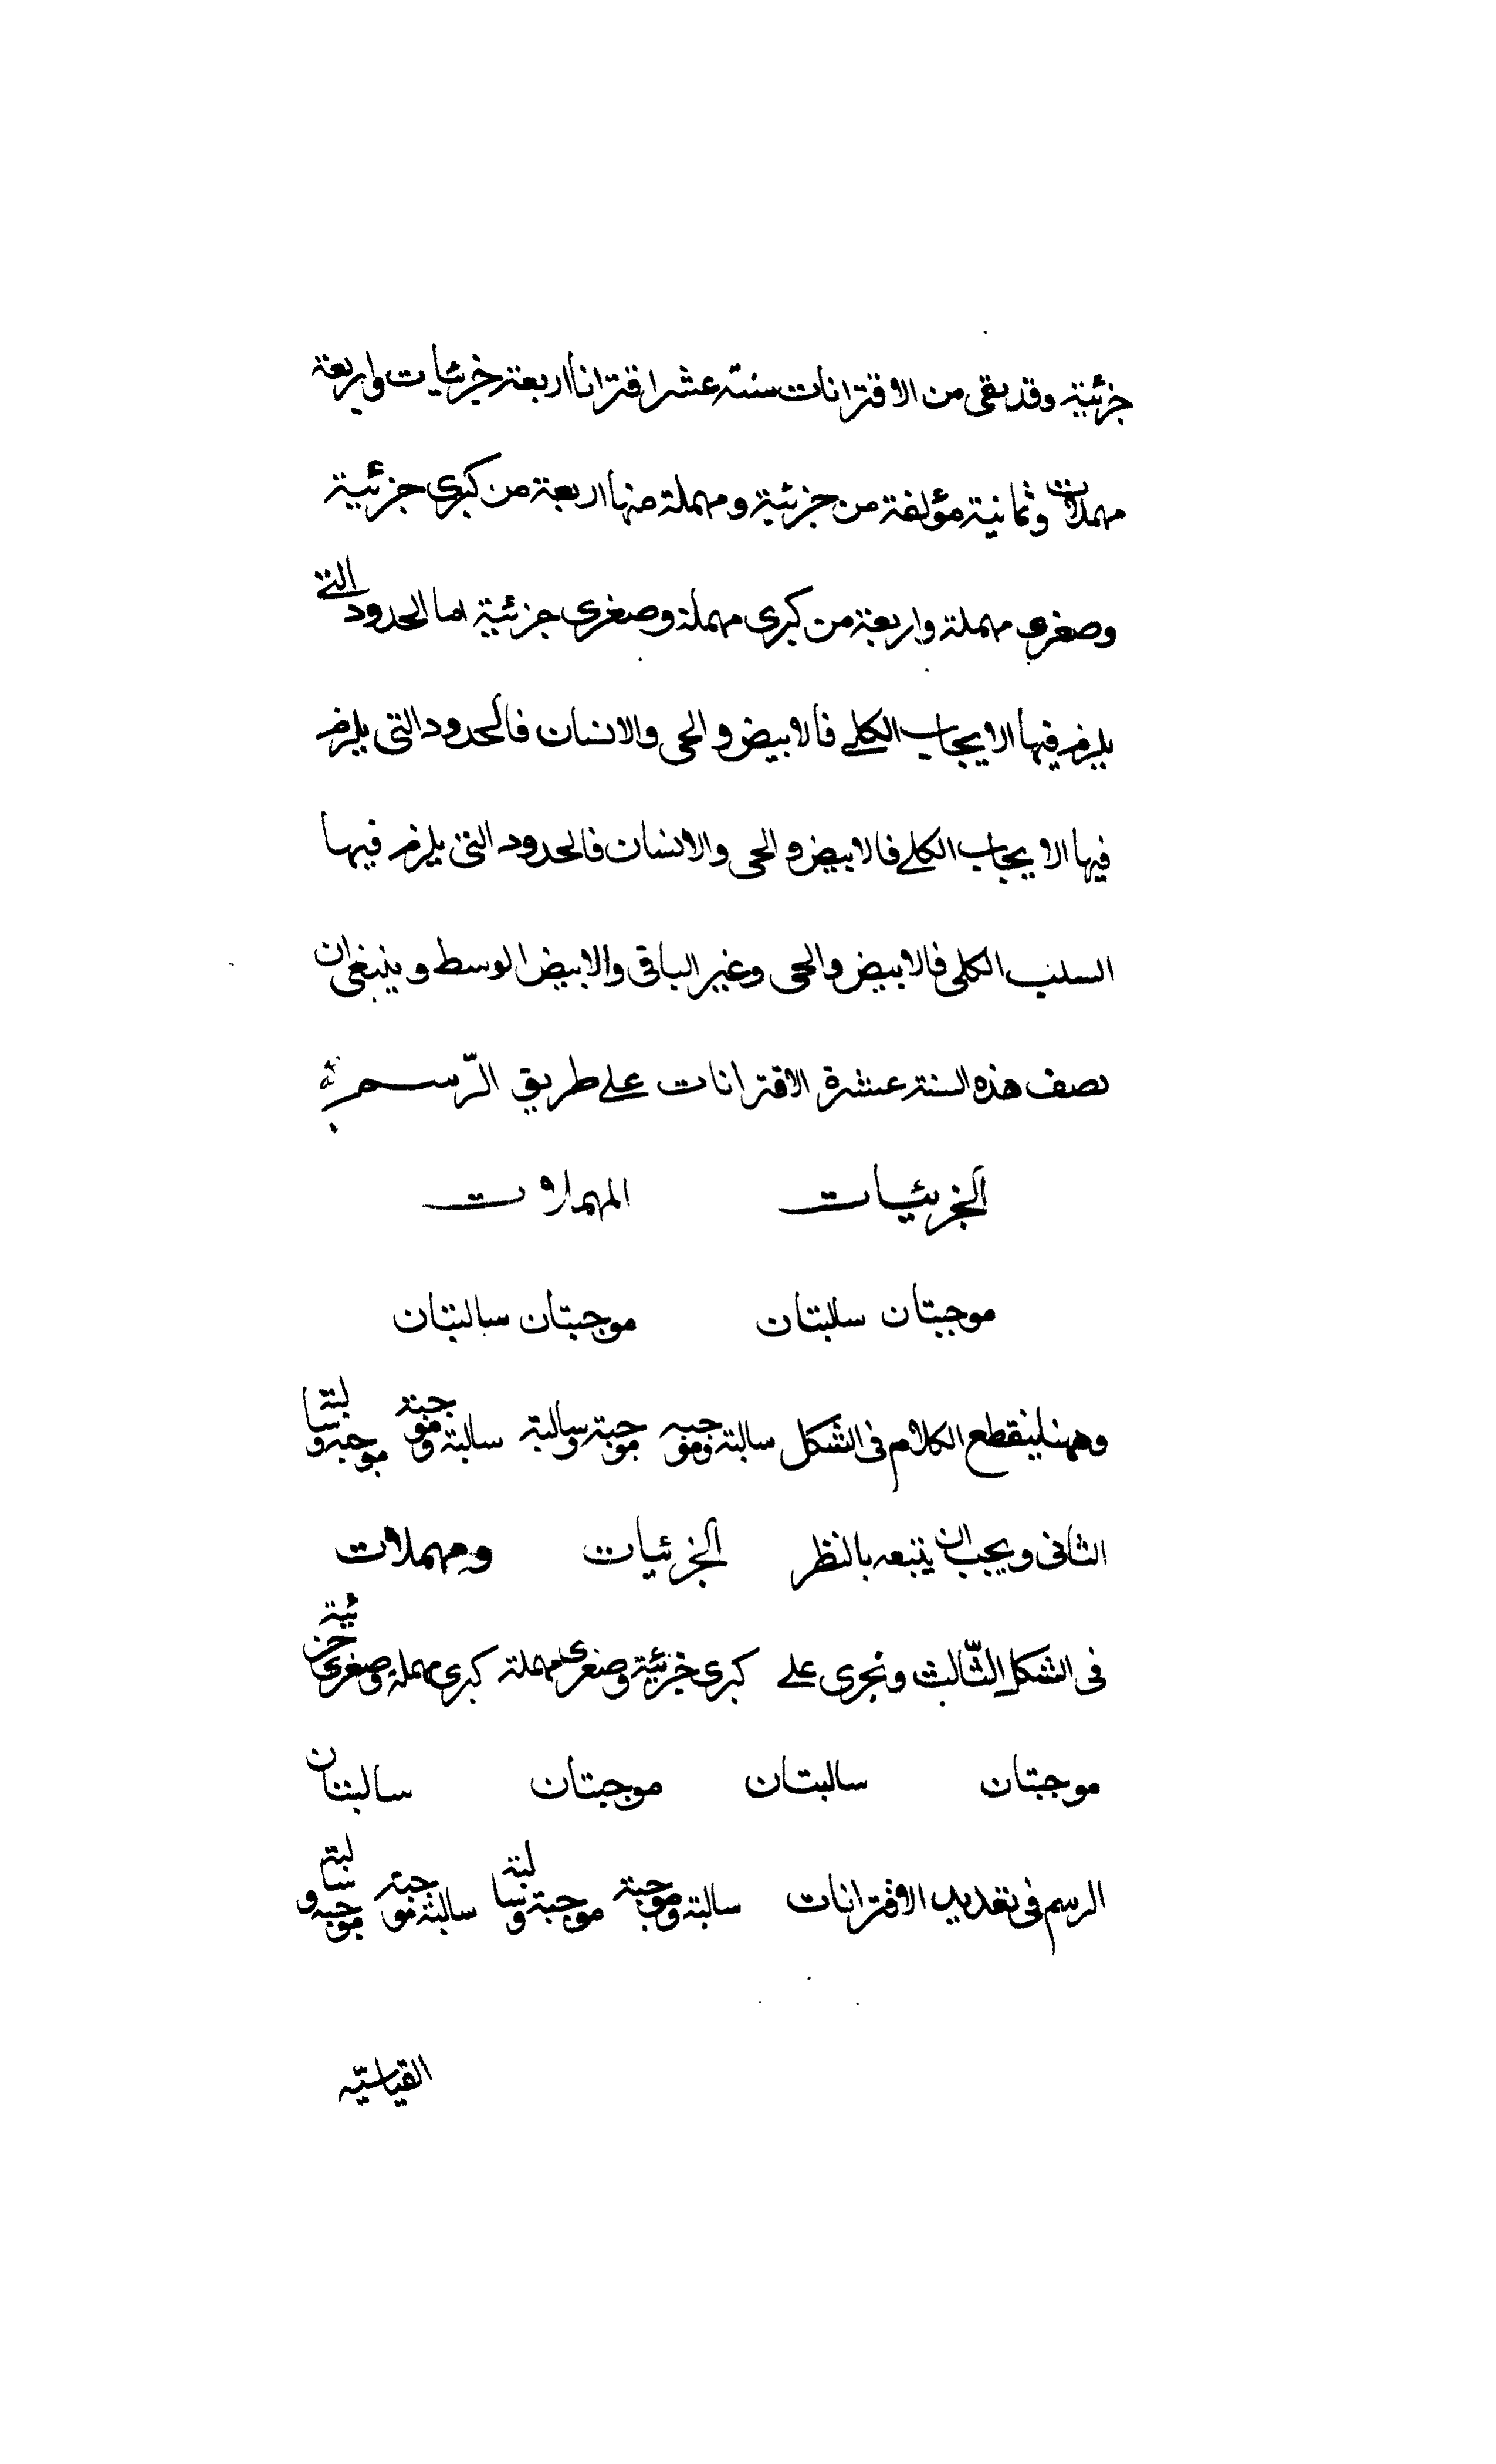 جزئية وقد بقى من الاقترانات ستة عشر اقترانا اربعة جزئيات واربعة
مهملات وثمانية مؤلفة من جزئية ومهملة منها اربعة من كبرى جزئية
وصغرى مهملة واربعة من كبرى مهملة وصغرى جزئية اما الحدود التى
يلزم فيها الايجاب الكلے فالابيض والحى والانسان فالحدود التى يلزم
فيها الايجاب الكلے فالابيض والحى والانسان فالحدود التى يلزم فيها
السلب الكلى فالابيض والحى وغير الباقى والابيض الوسط وينبغى ان
نصف هذه الستة عشرة الاقترانات علے طريق الرّسم
الجزئيات المهملات
موجبتان سلبتان موجبتان سالبتان
وههنا لينقطع الكلام فى الشكل سالبة وموجبه موجبة وسالبة سالبة وموجبة موجبه وسالبة
الثانى ويجب ان يتبعه بالنظر الجزئيات ومهملات
فى الشكل الثّالث ونجرى علے كبرى جزئية وصغرى مهملة كبرى مهملة وصغرى جزئية
موجبتان سالبتان موجبتان سالبتان
الرسم فى تعديد الاقترانات سالبة وموجبة موجبة وسالبة سالبة موجبة موجبه وسالبة
القياسيّه